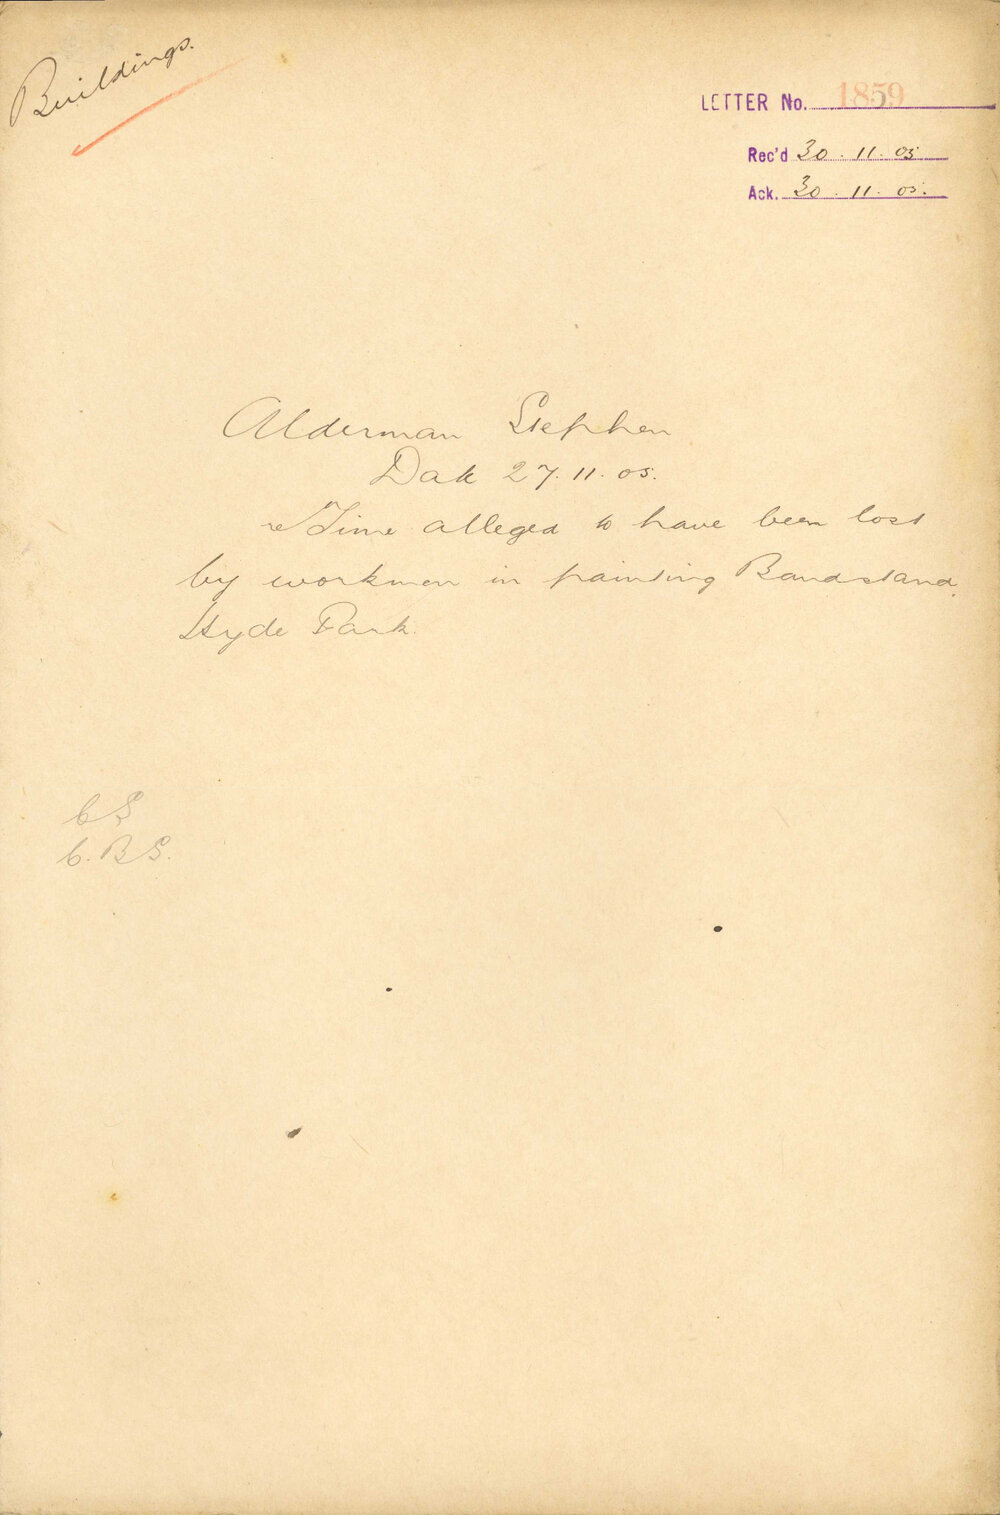 Buildings.
LETTER No. 1859
Rec'd 30.11.05
Ack. 30.11.05.
Alderman Stephen
Date 27.11.05.
re Time alleged to have been lost
by workmen in painting Bandstand,
Hyde Park.
CS
C.BS.